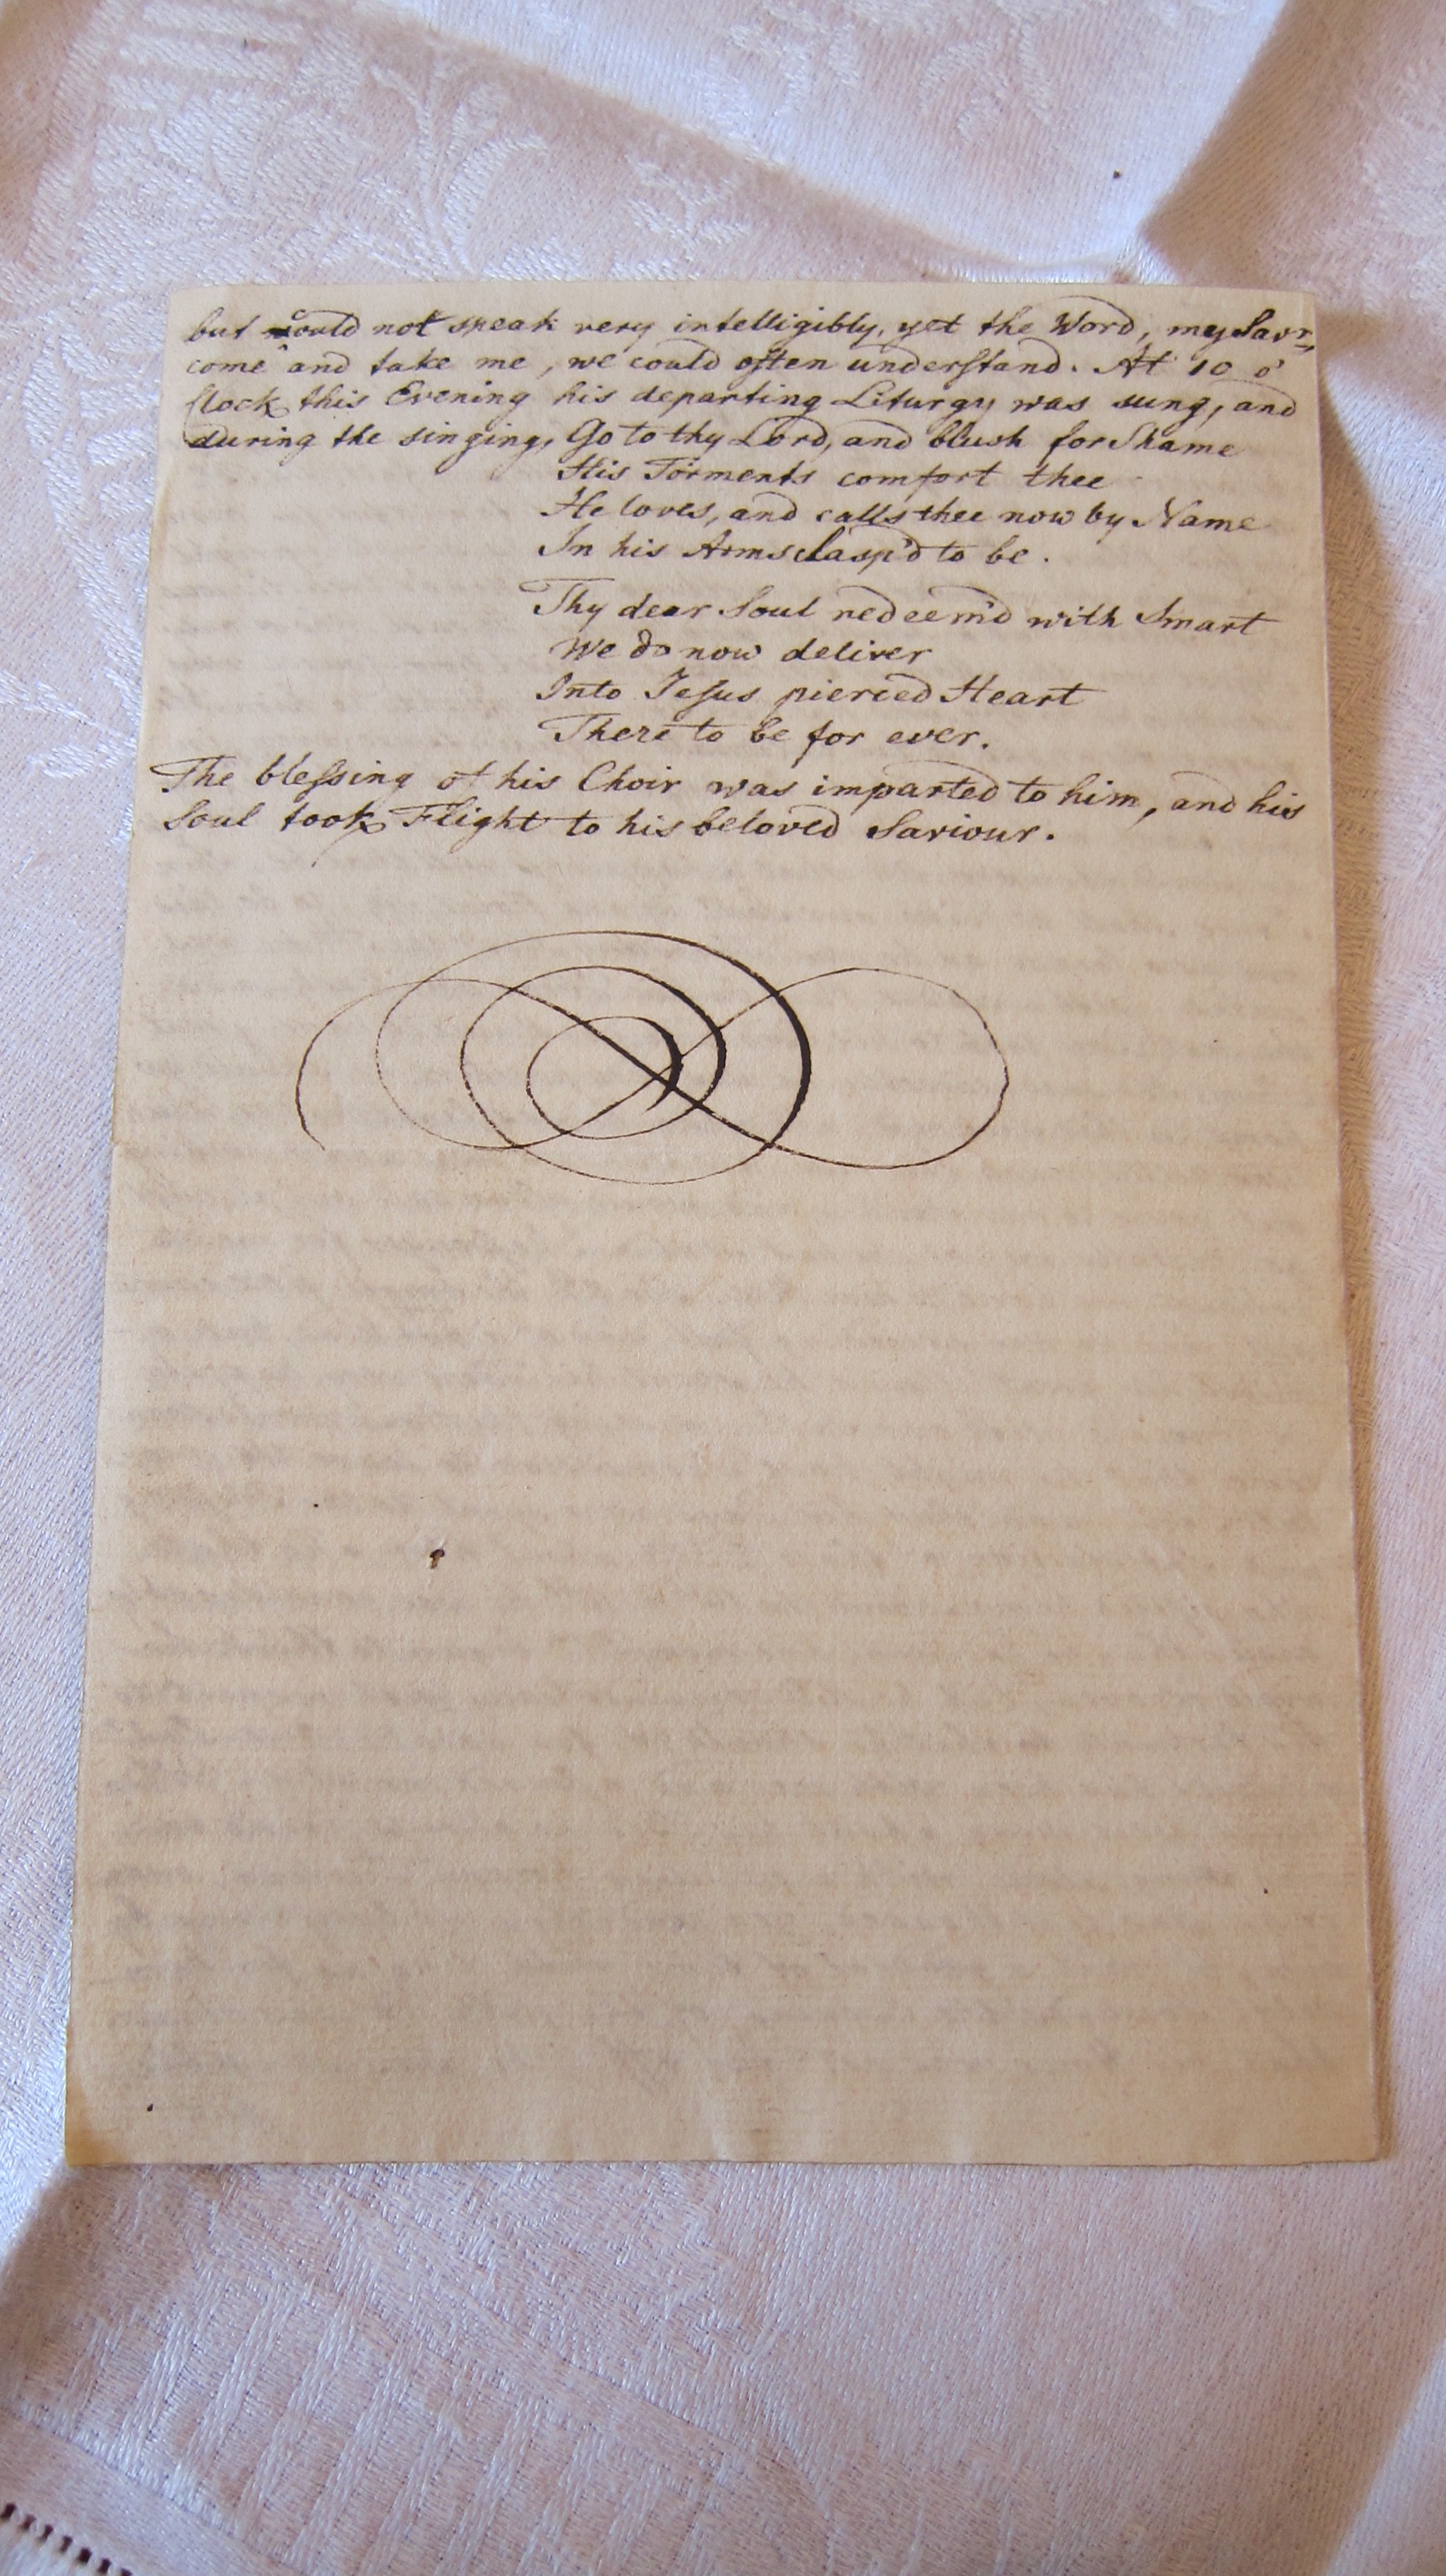 but could not speak very intelligibly, yet the Word, my Savr,
come and take me, we could often understand. At 10 o'
Clock this Evening his departing Liturgy was sung, and
during the singing, Go to thy Lord, and blush for Shame
His Torments comfort thee
He loves, and calls thee now by Name
In his Arms clasp'd to be.
Thy dear Soul redeem'd with Smart
We do now deliver
Into Jesus pierced Heart
There to be for ever.
The blessing of his Choir was imparted to him, and his
Soul took Flight to his beloved Saviour.